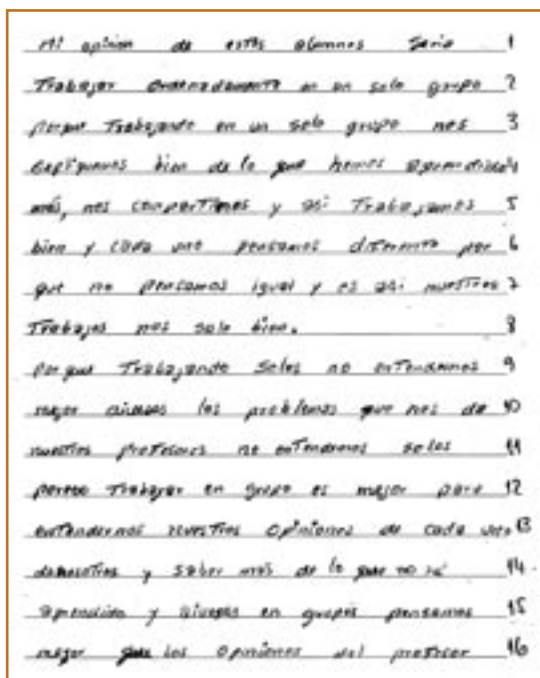 Mi opinion de estos alumnos seria 1
Trabajar ordenadamente en un solo grupo 2
porque Trabajando en un solo grupo nos 3
expliquemos bien de lo que hemos aprendido 4
más, nos compartimos y asi Trabajamos 5
bien y cada uno pensamos diferente por 6
que no pensamos igual y es asi nuestros 7
Trabajos nos sale bien. 8
porque Trabajando Solos no entendemos 9
mejor aiveses los problemas que nos da 10
nuestros profesores no entendemos solos 11
poreso Trabajar en grupo es mejor para 12
entendernos nuestros opiniones de cada uno 13
denosotros y saber más de lo que no 14
aprendido y aiveses en grupos pensamos 15
mejor que los Opiniones del profesor 16